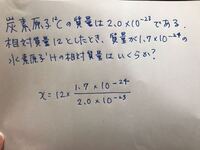 炭素原子¹²Cの質量は2.0×10⁻²³である.
相対質量12としたとき、質量が1.7×10⁻²⁴の
水素原子¹Hの相対質量はいくらか?
x = 12 × 1.7 × 10⁻²⁴ / 2.0 × 10⁻²³